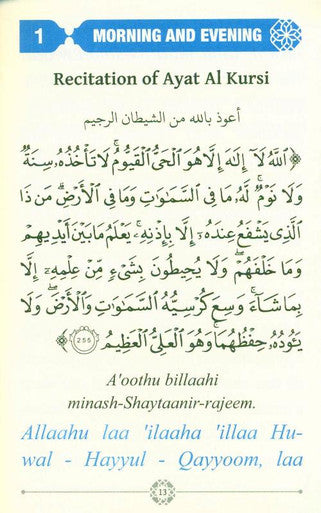 1 MORNING AND EVENING
Recitation of Ayat Al Kursi
أعوذ بالله من الشيطان الرجيم
﴿ اللَّهُ لَا إِلَٰهَ إِلَّا هُوَ الْحَيُّ الْقَيُّومُ ۚ لَا تَأْخُذُهُ سِنَةٌ
وَلَا نَوْمٌ ۚ لَّهُ مَا فِي السَّمَاوَاتِ وَمَا فِي الْأَرْضِ ۗ مَن ذَا
الَّذِي يَشْفَعُ عِندَهُ إِلَّا بِإِذْنِهِ ۚ يَعْلَمُ مَا بَيْنَ أَيْدِيهِمْ
وَمَا خَلْفَهُمْ ۖ وَلَا يُحِيطُونَ بِشَيْءٍ مِّنْ عِلْمِهِ إِلَّا
بِمَا شَاءَ ۚ وَسِعَ كُرْسِيُّهُ السَّمَاوَاتِ وَالْأَرْضَ ۖ وَلَا
يَئُودُهُ حِفْظُهُمَا ۚ وَهُوَ الْعَلِيُّ الْعَظِيمُ 255 ﴾
A'oothu billaahi
minash-Shaytaanir-rajeem.
Allaahu laa 'ilaaha 'illaa Hu-
wal - Hayyul - Qayyoom, laa
13